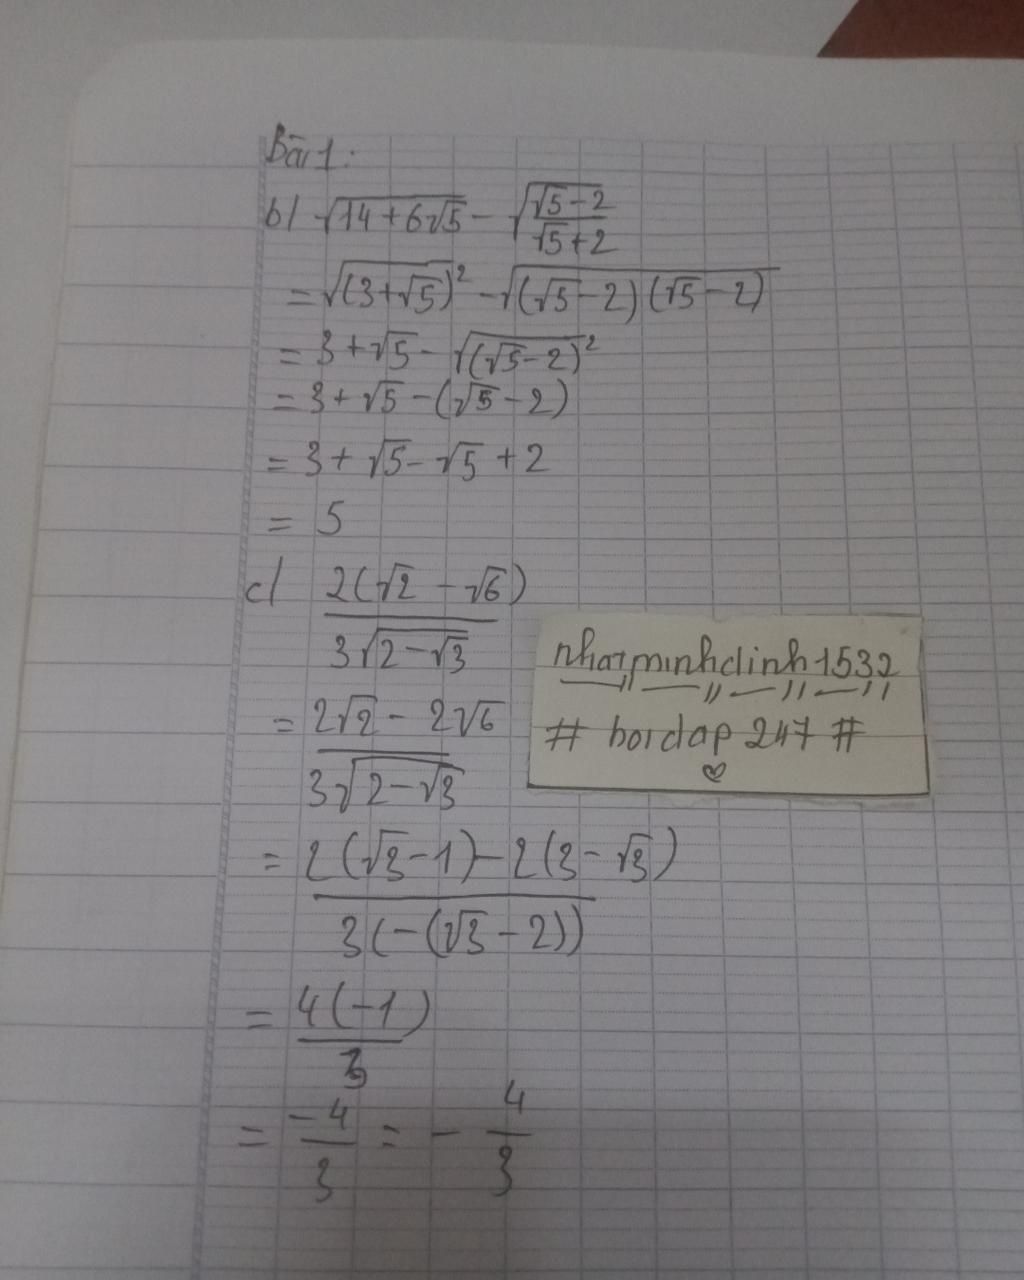 Bài 1:
b) √(14+6√5) - √((√5-2)/(√5+2))
= √((3+√5)²) - √((√5-2)(√5-2))
= 3+√5 - √((√5-2)²)
= 3+√5-(√5-2)
= 3+√5-√5+2
= 5
c) 2(√2-√6)/(3√(2-√3))
= (2√2-2√6)/(3√(2-√3))
= (2(√3-1)-2(3-√3))/(3(-(√3-2)))
= 4(-1)/3
= -4/3 = -4/3
nhatminhdinh1532
# hoidap 247 #